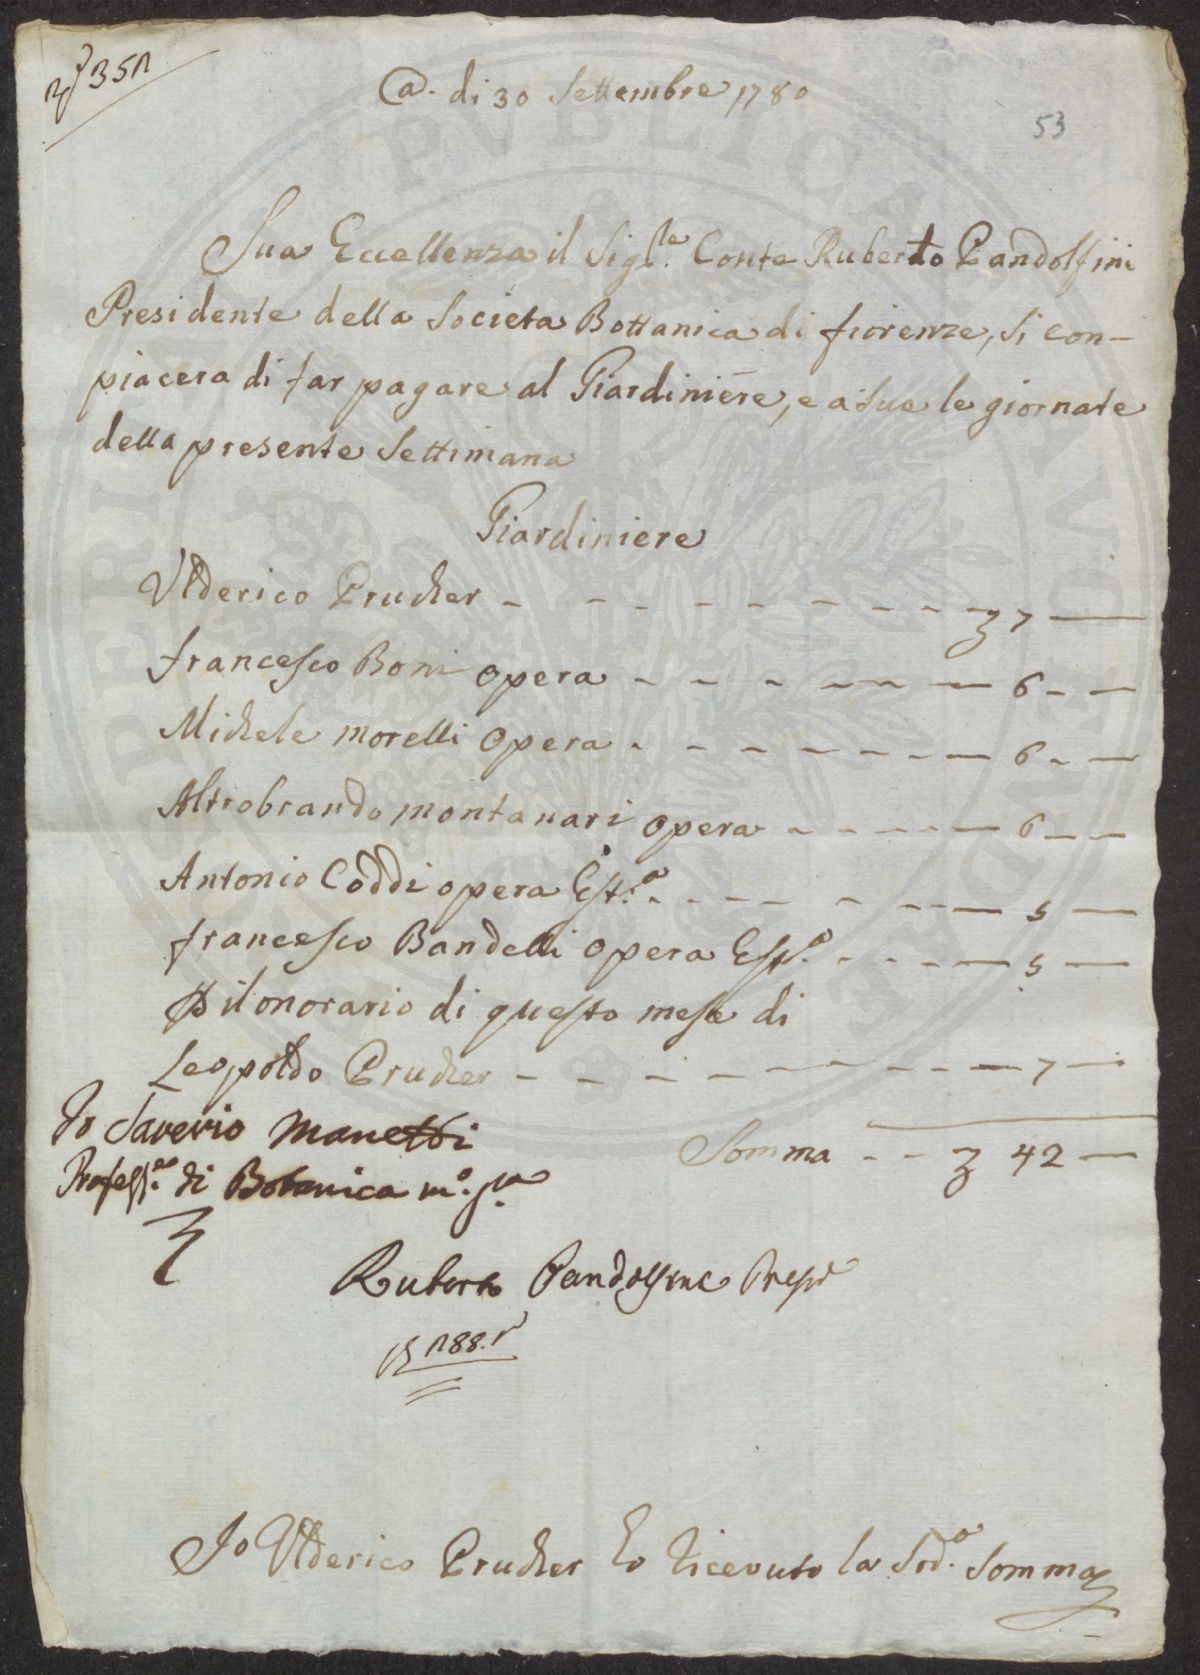 351
@. di 30 Settembre 1780
53
Sua Eccellenza il Sig.le Conte Ruberto Pandolfini
Presidente della Societa Bottanica di fiorenze, si con-
piacera di far pagare al Giardiniere, e a sue le giornate
della presente Settimana
Giardiniere
Ulderico Prucher - - - - - - - - - 7 —
francesco Boni opera - - - - - — 6 - —
Michele morelli opera - - - - - - — 6 - —
Altrobrando montanari opera - - - - - — 6 — —
Antonio Coddi opera Est.a - - - - - - — 5 —
francesco Bandelli opera Est.a - - - - — 5 —
P il onorario di questo mese di
Leopoldo Prucher - - - - - - - - — 7 —
Io Saverio Manetti
Somma - - 42 —
Profess.re di Botanica m.o p.a
Ruberto Pandolfini Presid
188.
Io Ulderico Prucher ho ricevuto la Sod.a Somma
PVBLICA